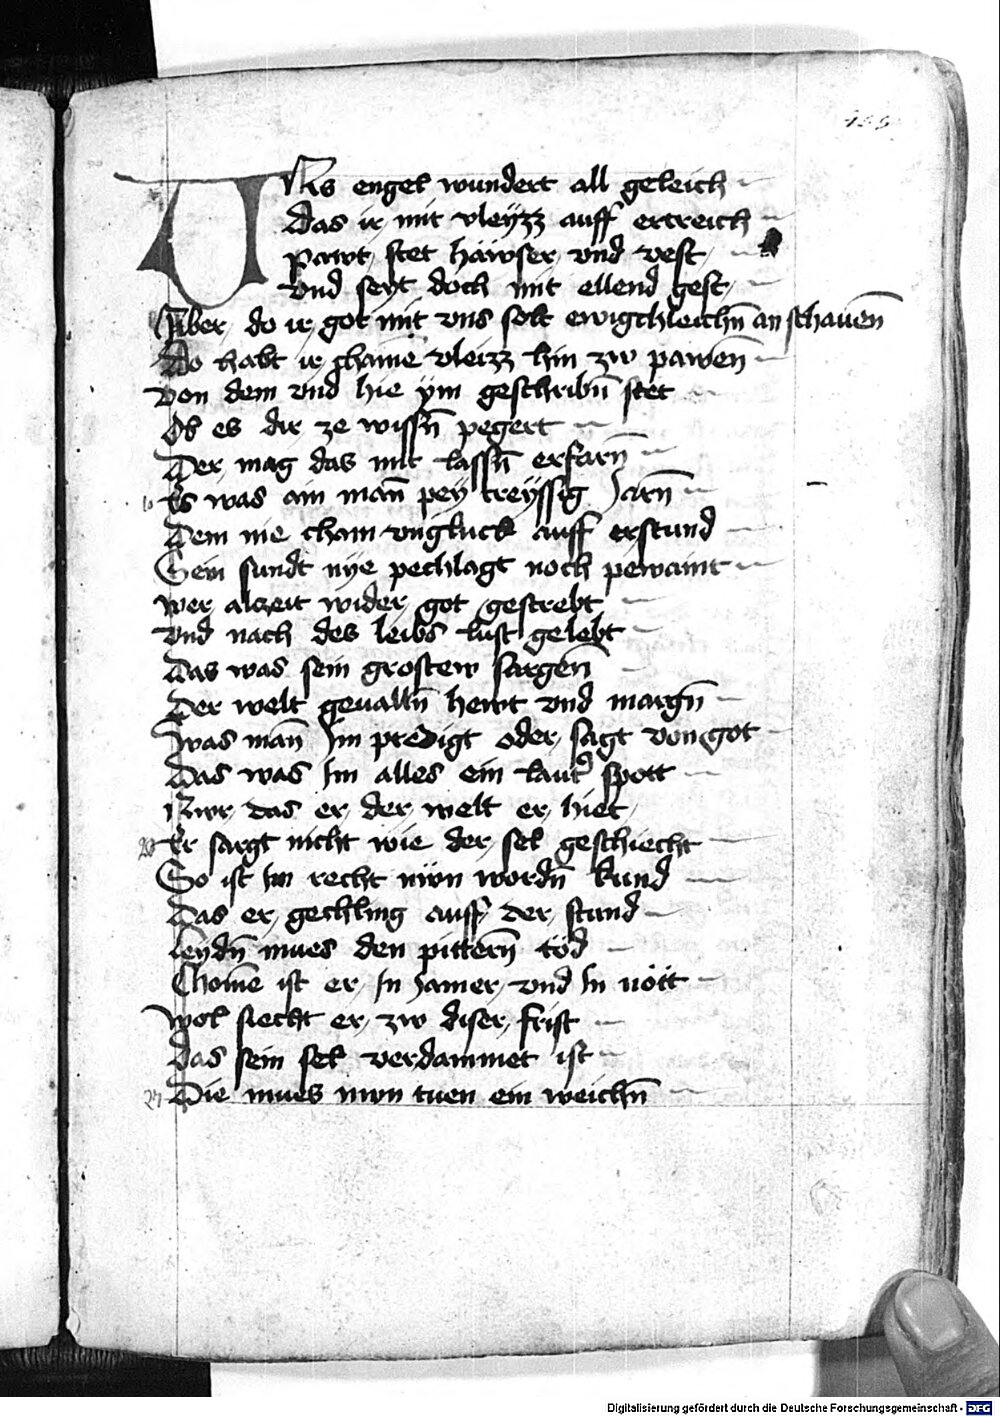 VNs engel wundert all geleich
Das ir mit vleyzz auff ertreich
pawt stet häwser vnd vest
vnd seyt doch mit ellend gest
Aber do ir got mit vns solt ewigchleichn̄ an schauen̄
Do habt ir chaine vleizz hin zw pawen̄
von dem vnd hie ym geschribn̄ stet
Ob es dir ze wissn̄ pegert
Der mag das mit lassn̄ erfarn̄
Es was ain man̄ pey treyssig Jarn̄
Dem nie cham vngluck auff erstund
Sein sundt nye pechlagt noch pewaint
wer alczeit wider got gestrebt
vnd nach des leibs lust gelebt
Das was sein grostew sargen̄
Der welt geualln̄ hewt vnd margn̄
was man̄ Im predigt oder sagt von got
Das was Im alles ein laut spott
Nwr das er der welt er hiet
Er sargt nicht wie der sel geschiecht
So ist Im recht nwn wordn̄ kund
Das er gechling auff der stund
leydn̄ mues den pittern̄ töd
Chome ist er In Jamer vnd In nött
wol siecht er zw diser frist
Das sein sel verdammet ist
Die mues nwn tuen ein weichn̄
Digitalisierung gefördert durch die Deutsche Forschungsgemeinschaft - DFG